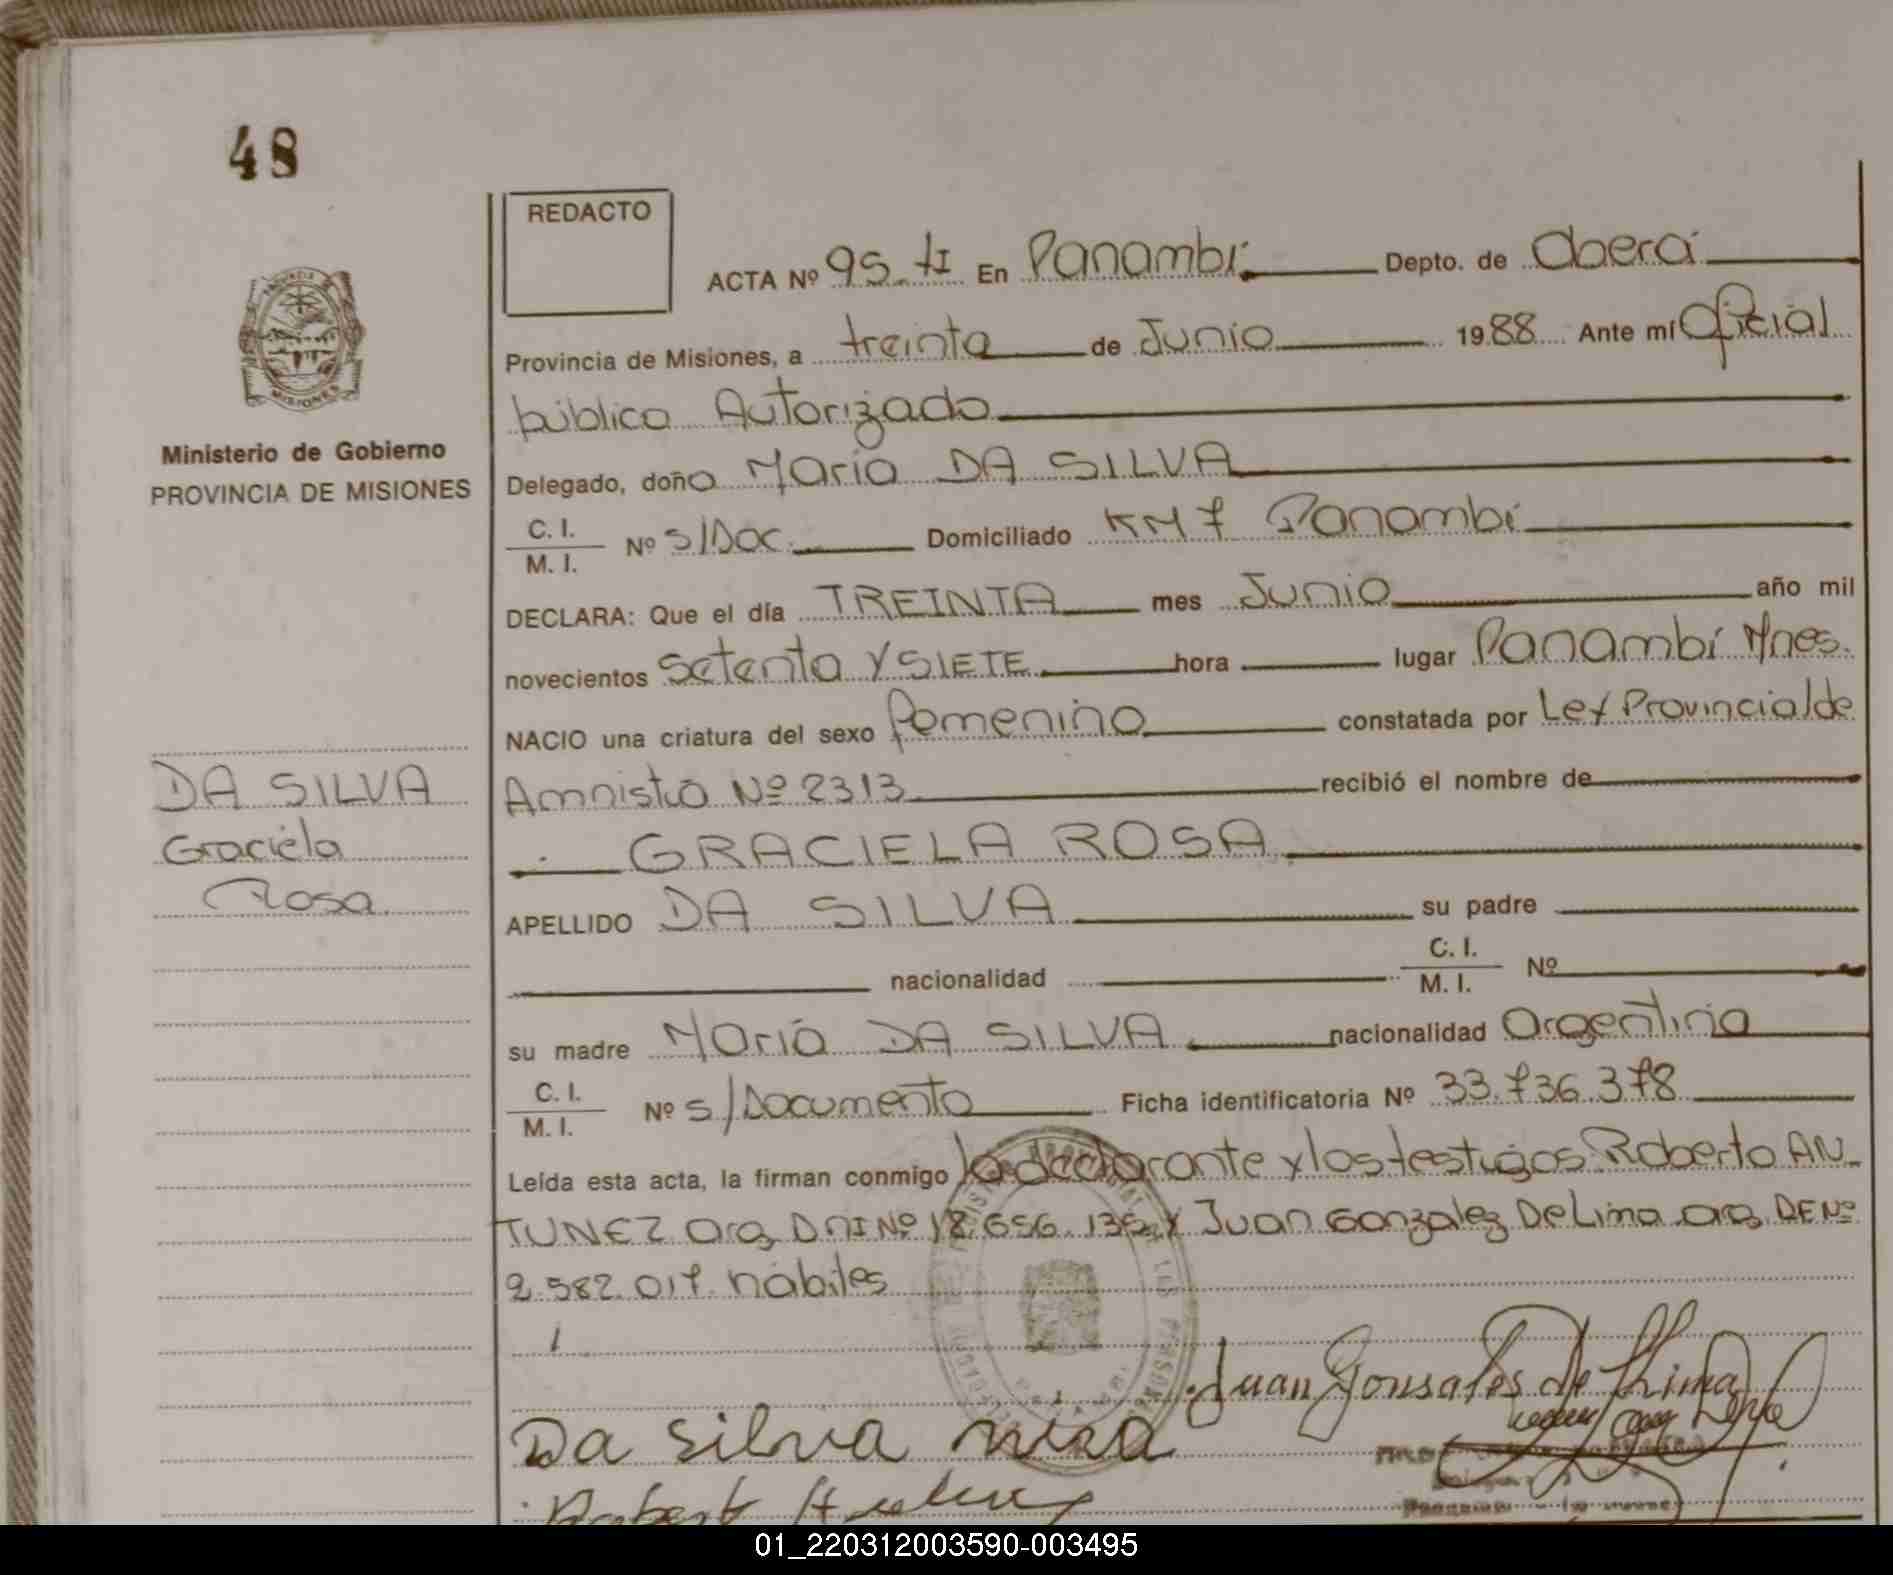 48
REDACTO
ACTA Nº 95. tI En Panambí Depto. de Oberá
Provincia de Misiones, a treinta de Junio 1988 Ante mí Oficial
público Autorizado
Ministerio de Gobierno
PROVINCIA DE MISIONES
Delegado, doña María DA SILVA
C. I.
M. I. Nº S/Doc. Domiciliado KM 7 Panambí
DECLARA: Que el día TREINTA mes Junio año mil
novecientos Setenta Y SIETE hora lugar Panambí Mnes.
NACIO una criatura del sexo femenino constatada por Ley Provincial de
DA SILVA
Graciela
Rosa
Amnistía Nº 2313 recibió el nombre de
GRACIELA ROSA
APELLIDO DA SILVA su padre
nacionalidad C. I.
M. I. Nº
su madre María DA SILVA nacionalidad Argentina
C. I.
M. I. Nº S/Documento Ficha identificatoria Nº 33.736.378
Leída esta acta, la firman conmigo la declarante y los testigos Roberto AN_
TUNEZ Arg DNI Nº 18.656.135 y Juan Gonzalez De Lima arg DE Nº
2.582.017 hábiles
Juan Gonsales de Lima
Da Silva
01_220312003590-003495